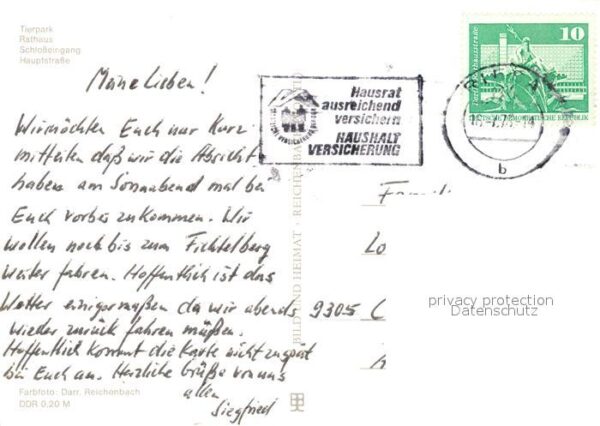 Tierpark
Rathaus
Schloßeingang
Hauptstraße
Meine Lieben!
Wir möchten Euch nur kurz
mitteilen daß wir die Absicht
haben am Sonnabend mal bei
Euch vorbei zu kommen. Wir
wollen noch bis zum Fichtelberg
weiter fahren. Hoffentlich ist das
Wetter einigermaßen da wir abends
wieder zurück fahren müßen.
Hoffentlich kommt die Karte nicht zu spät
bei Euch an. Herzliche Grüße von uns
allen
Siegfried
Farbfoto: Darr, Reichenbach
DDR 0,20 M
BILD UND HEIMAT · REICHENBACH
Hausrat
ausreichend
versichern
HAUSHALT
VERSICHERUNG
10
DEUTSCHE DEMOKRATISCHE REPUBLIK
b
Lo
9305
privacy protection
Datenschutz